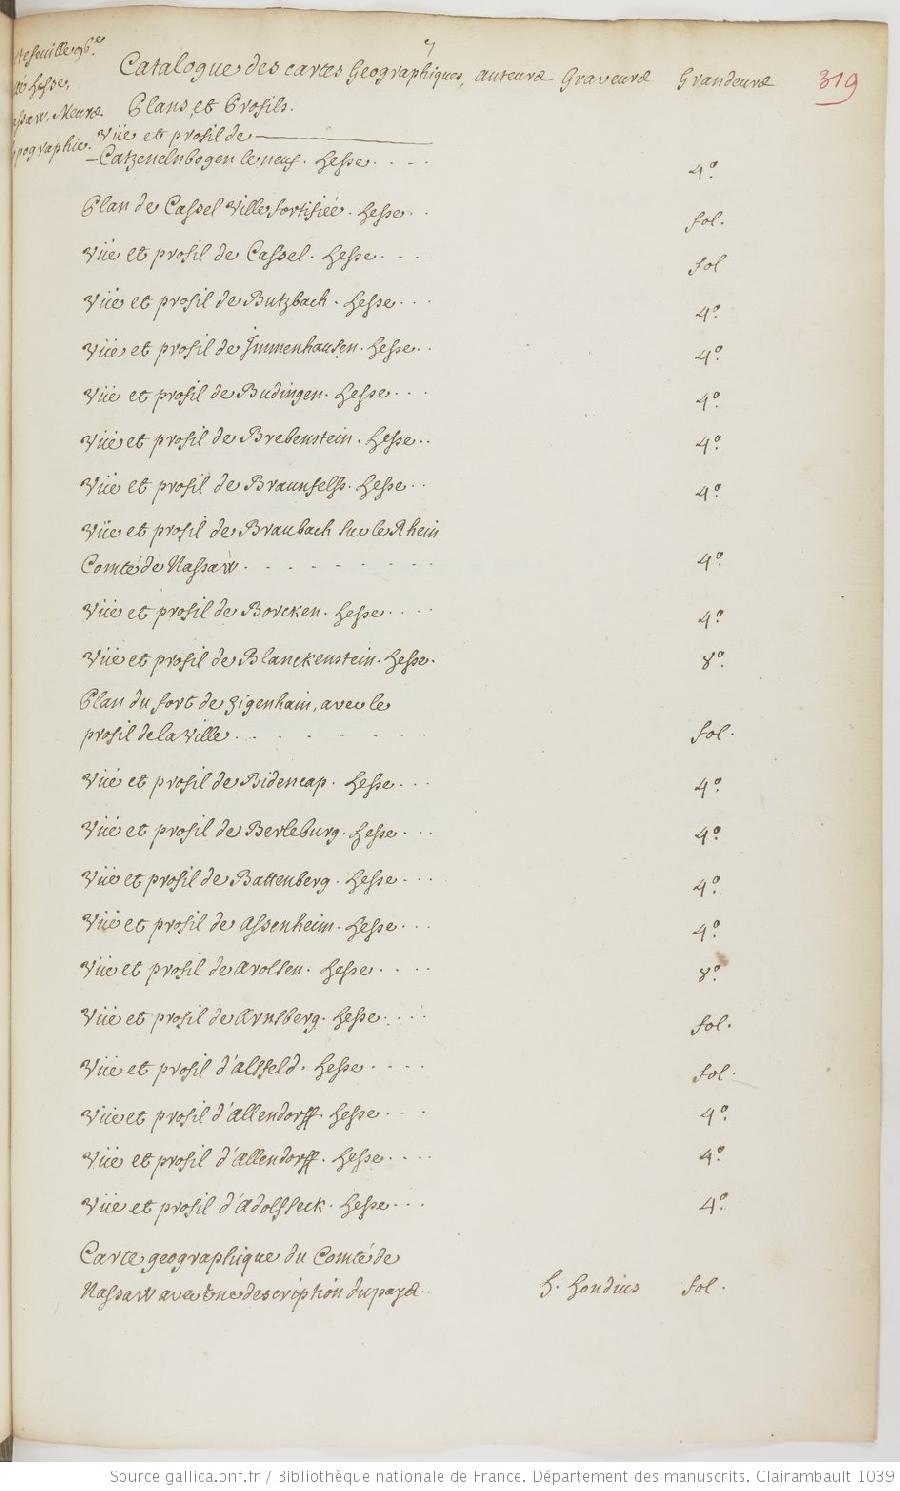 7
Catalogue des cartes Geographiques, auteurs Graveurs Grandeurs 319
Plans, et Profils.
tefeuille 96.e
Hesse,
Nassaw, Meurs
topographie.
Vüe et profil de
Catzenelnbogen le neuf. Hesse.... 4.º
Plan de Cassel Ville fortifiée. Hesse.. fol.
Vüe et profil de Cassel. Hesse.... fol
Vüe et profil de Butzbach. Hesse... 4.º
Vüe et profil de Jmmenhausen. Hesse.. 4.º
Vüe et profil de Budingen. Hesse... 4.º
Vüe et profil de Brebenstein. Hesse.. 4.º
Vüe et profil de Braunfelss. Hesse.. 4.º
Vüe et profil de Braubach sur le Rhein
Comté de Nassaw......... 4.º
Vüe et profil de Borcken. Hesse.... 4.º
Vüe et profil de Blanckenstein. Hesse. 8.º
Plan du fort de Zigenhain, avec le
profil de la ville...... fol.
Vüe et profil de Bidencap. Hesse... 4.º
Vüe et profil de Berleburg. Hesse... 4.º
Vüe et profil de Battenberg. Hesse... 4.º
Vüe et profil de Assenheim. Hesse... 4.º
Vüe et profil de Arolsen. Hesse.... 8.º
Vüe et profil de Arnsberg. Hesse.... fol.
Vüe et profil d'Alsfeld. Hesse.... fol.
Vüe et profil d'Allendorff. Hesse... 4.º
Vüe et profil d'Allendorff. Hesse.... 4.º
Vüe et profil d'Adolfseck. Hesse... 4.º
Carte geographique du Comté de
Nassaw avec une description du pays H. Hondius fol.
Source gallica.bnf.fr / Bibliothèque nationale de France. Département des manuscrits. Clairambault 1039